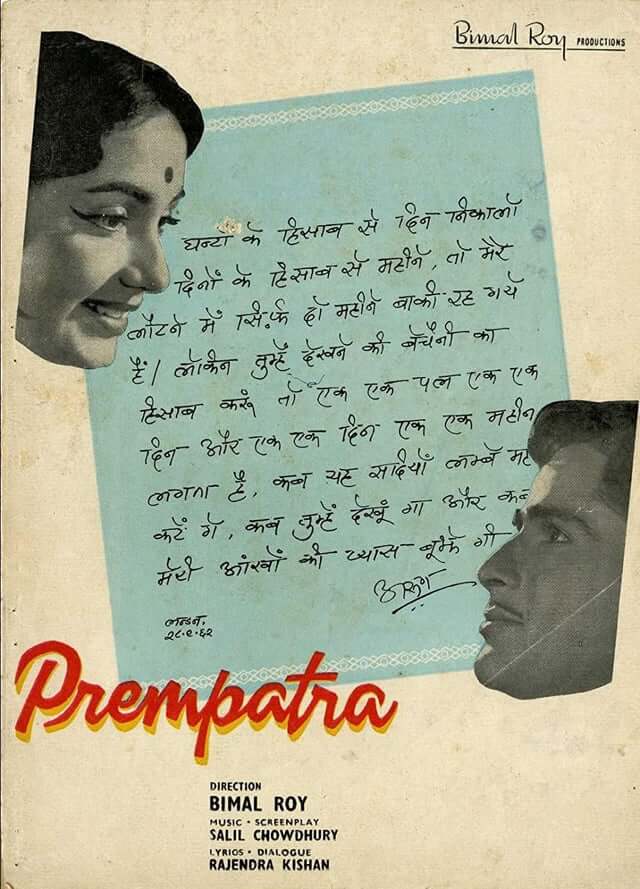 Bimal Roy PRODUCTIONS
घन्टों के हिसाब से दिन निकालो
दिनों के हिसाब से महीने, तो मेरे
लौटने में सिर्फ़ दो महीने बाकी रह गये
हैं। लेकिन तुम्हें देखने की बेचैनी का
हिसाब करूं तो एक एक पल एक एक
दिन और एक एक दिन एक एक महीन
लगता है, कब यह सदियाँ लम्बे
कटें गे, कब तुम्हें देखूं गा और कब
मेरी आंखों की प्यास बूझे गी
अरुण
लन्डन.
२८-९-६२
Prempatra
DIRECTION
BIMAL ROY
MUSIC • SCREENPLAY
SALIL CHOWDHURY
LYRICS • DIALOGUE
RAJENDRA KISHAN